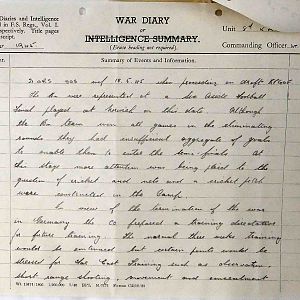 Diaries and Intelligence
d in F.S. Regs., Vol. I.
spectively. Title pages
script.
WAR DIARY
OF
INTELLIGENCE SUMMARY.
(Erase heading not required).
Unit
Commanding Officer
1945.
Summary of Events and Information.
who proceeding on draft
The Bn were represented at a Sea Assault Football
final played at Norwich on this date. Although
the Bn team won all games in the eliminating
rounds they had insufficient aggregate of goals
to enable them to enter the semi-finals. At
this stage more attention was being placed to the
question of cricket and nets and a cricket pitch
were constructed in the Camp.
In view of the termination of the war
in Germany the CO prepared a training directive
for future training. The normal three weeks training
would be continued but certain points would be
stressed for Far East Training such as observation
short range shooting, movement and concealment